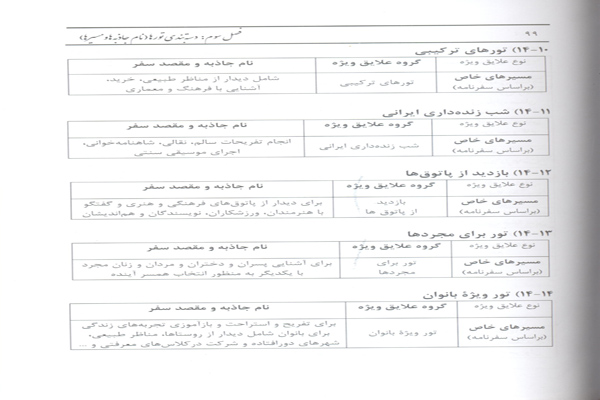 ۹۹
فصل سوم: دسته‌بندی تورها (نام جاذبه‌ها و مسیرها)
۱۴-۱۰) تورهای ترکیبی
نوع علایق ویژه گروه علایق ویژه نام جاذبه و مقصد سفر
مسیرهای خاص (براساس سفرنامه) تورهای ترکیبی شامل دیدار از مناظر طبیعی، خرید،
آشنایی با فرهنگ و معماری
۱۴-۱۱) شب زنده‌داری ایرانی
نوع علایق ویژه گروه علایق ویژه نام جاذبه و مقصد سفر
مسیرهای خاص (براساس سفرنامه) شب زنده‌داری ایرانی انجام تفریحات سالم، نقالی، شاهنامه‌خوانی،
اجرای موسیقی سنتی
۱۴-۱۲) بازدید از پاتوق‌ها
نوع علایق ویژه گروه علایق ویژه نام جاذبه و مقصد سفر
مسیرهای خاص بازدید برای دیدار از پاتوق‌های فرهنگی و هنری و گفتگو
(براساس سفرنامه) از پاتوق ها با هنرمندان، ورزشکاران، نویسندگان و هم‌اندیشان
۱۴-۱۳) تور برای مجردها
نوع علایق ویژه گروه علایق ویژه نام جاذبه و مقصد سفر
مسیرهای خاص تور برای برای آشنایی پسران و دختران و مردان و زنان مجرد
(براساس سفرنامه) مجردها با یکدیگر به منظور انتخاب همسر آینده
۱۴-۱۴) تور ویژهٔ بانوان
نوع علایق ویژه گروه علایق ویژه نام جاذبه و مقصد سفر
مسیرهای خاص (براساس سفرنامه) تور ویژهٔ بانوان برای تفریح و استراحت و بازآموزی تجربه‌های زندگی
برای بانوان شامل دیدار از روستاها، مناظر طبیعی،
شهرهای دورافتاده و شرکت در کلاس‌های معرفتی و ...